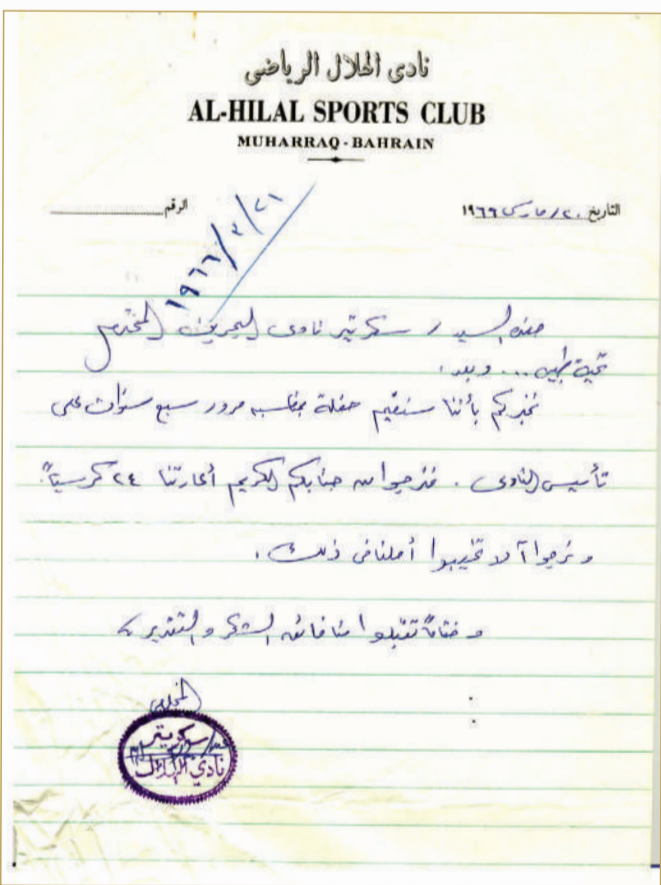 نادى الهلال الرياضى
AL-HILAL SPORTS CLUB
MUHARRAQ - BAHRAIN
التاريخ ٢٠/مارس ١٩٦٦
الرقم
١٩٦٦/٣/٢١
حضرة السيد / سكرتير نادى البحرين المحترم
تحية طيبة ... وبعد ،
نخبركم بأننا سنقيم حفلة بمناسبة مرور سبع سنوات على
تأسيس النادى . فنرجوا من جنابكم الكريم أعارتنا ٢٤ كرسيّاً.
ونرجوا ألا تخيبوا أملنا فى ذلك .
وختاماً تقبلوا منا فائق الشكر والتقدير ،
المخلص
سكرتير
نادي الهلال